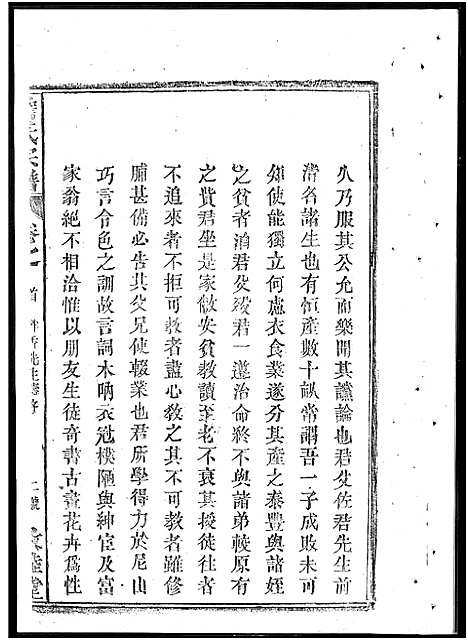 人乃服其公允而樂聞其讜論也君父佐君先生前
清名諸生也有恒產數十畝常謂吾一子成敗未可
知使能獨立何慮衣食業遂分其產之泰豐與諸姪
之貧者消君父歿君一遵治命終不與諸弟較原有
之貲君坐是家儉安貧教讀至老不衰其授徒往者
不追來者不拒可教者盡心教之其不可教者雖修
脯甚備必告其父兄使輟業也君所學得力於尼山
巧言令色之訓故言詞木吶衣冠樸陋與紳宦及富
家翁絕不相洽惟以朋友生徒奇書古畫花卉為性
氏宗譜
卷之一
首
先生
二號
堂